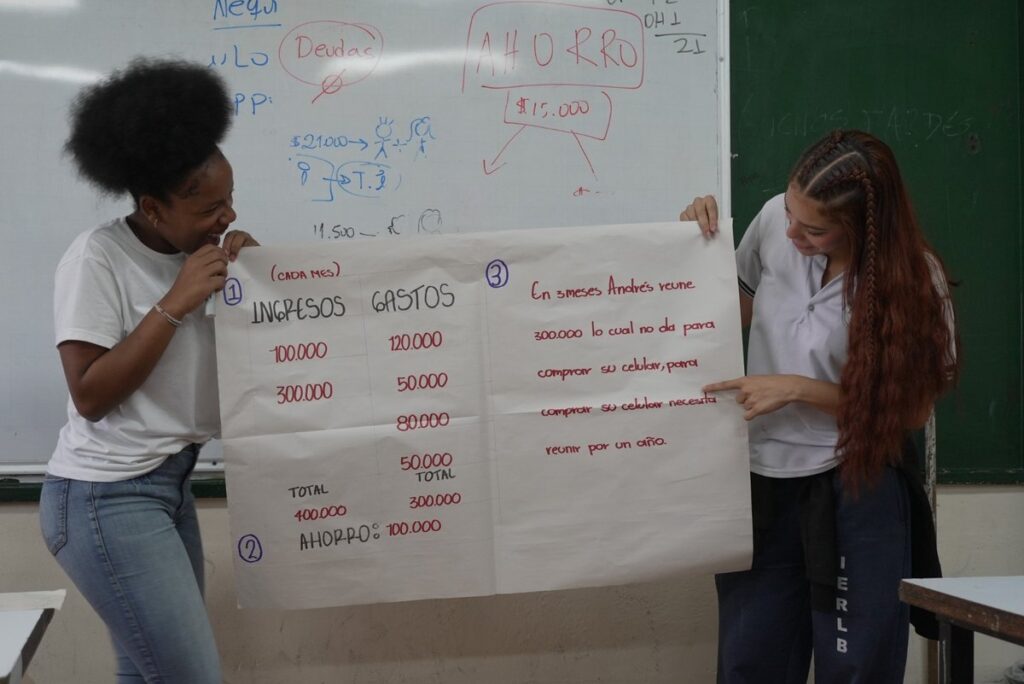 Nequi
Deudas
AHORRO
$15.000
21
$21000
T.I
11.500
(CADA MES)
1
INGRESOS GASTOS
100.000 120.000
300.000 50.000
80.000
50.000
TOTAL TOTAL
400.000 300.000
2 AHORRO: 100.000
3
En 3 meses Andrés reune
300.000 lo cual no da para
comprar su celular, para
comprar su celular necesita
reunir por un año.
IERLB